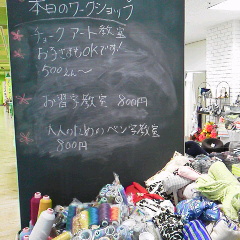 本日のワークショップ
チョークアート教室
お子さまもOKです!
500えん〜
お習字教室 800円
大人のためのペン字教室
800円